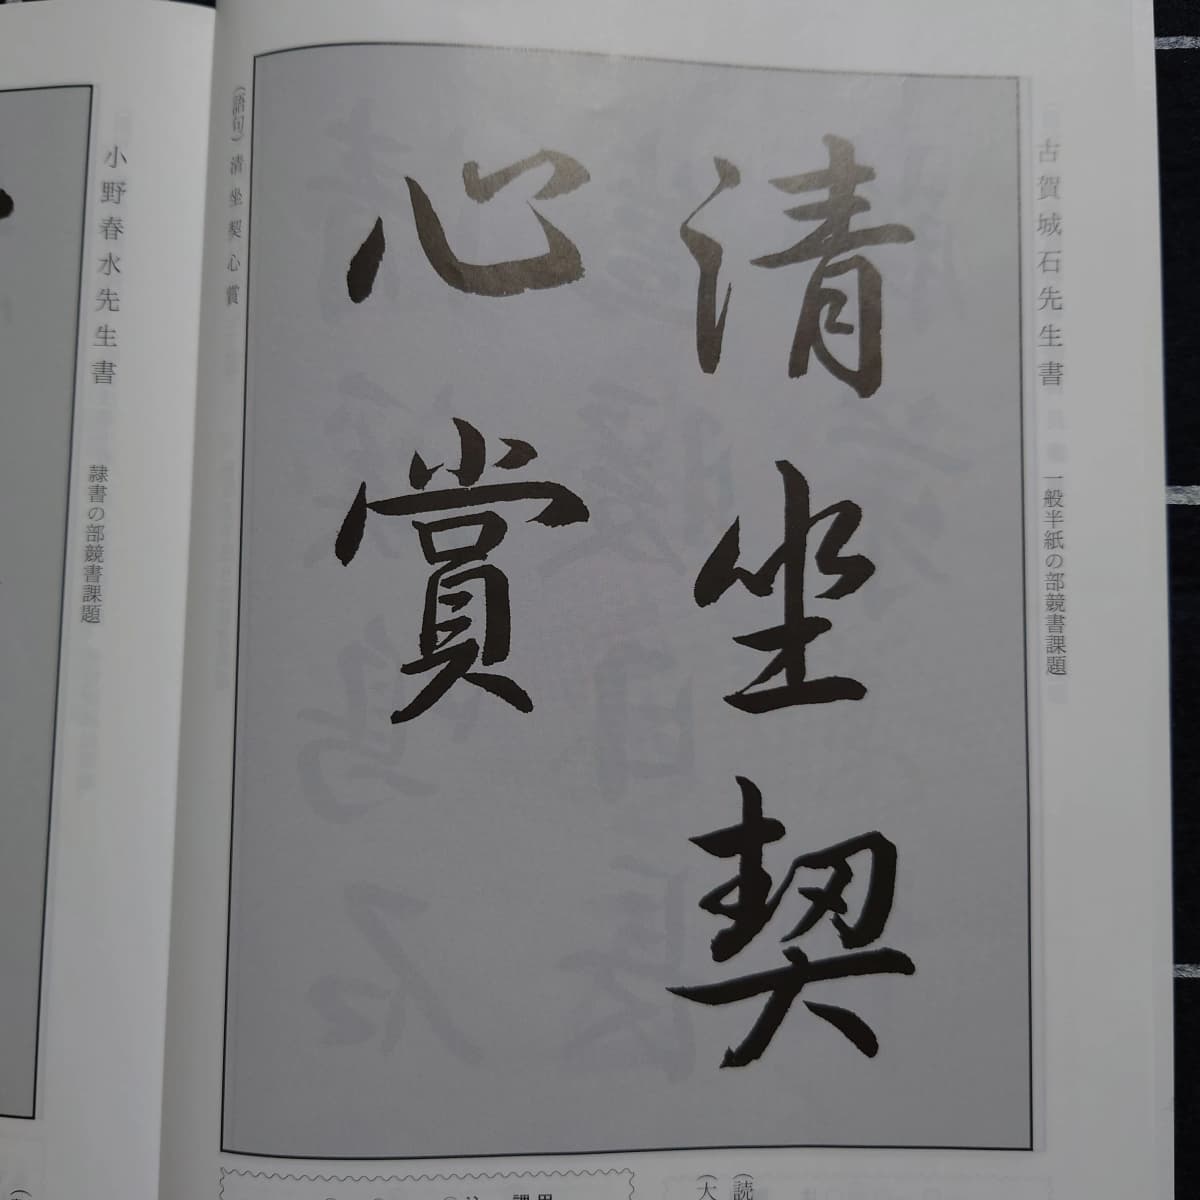 古賀城石先生書 一般半紙の部競書課題
清坐契
心賞
(語句) 清坐契心賞
小野春水先生書 隷書の部競書課題
(読
(大
課用